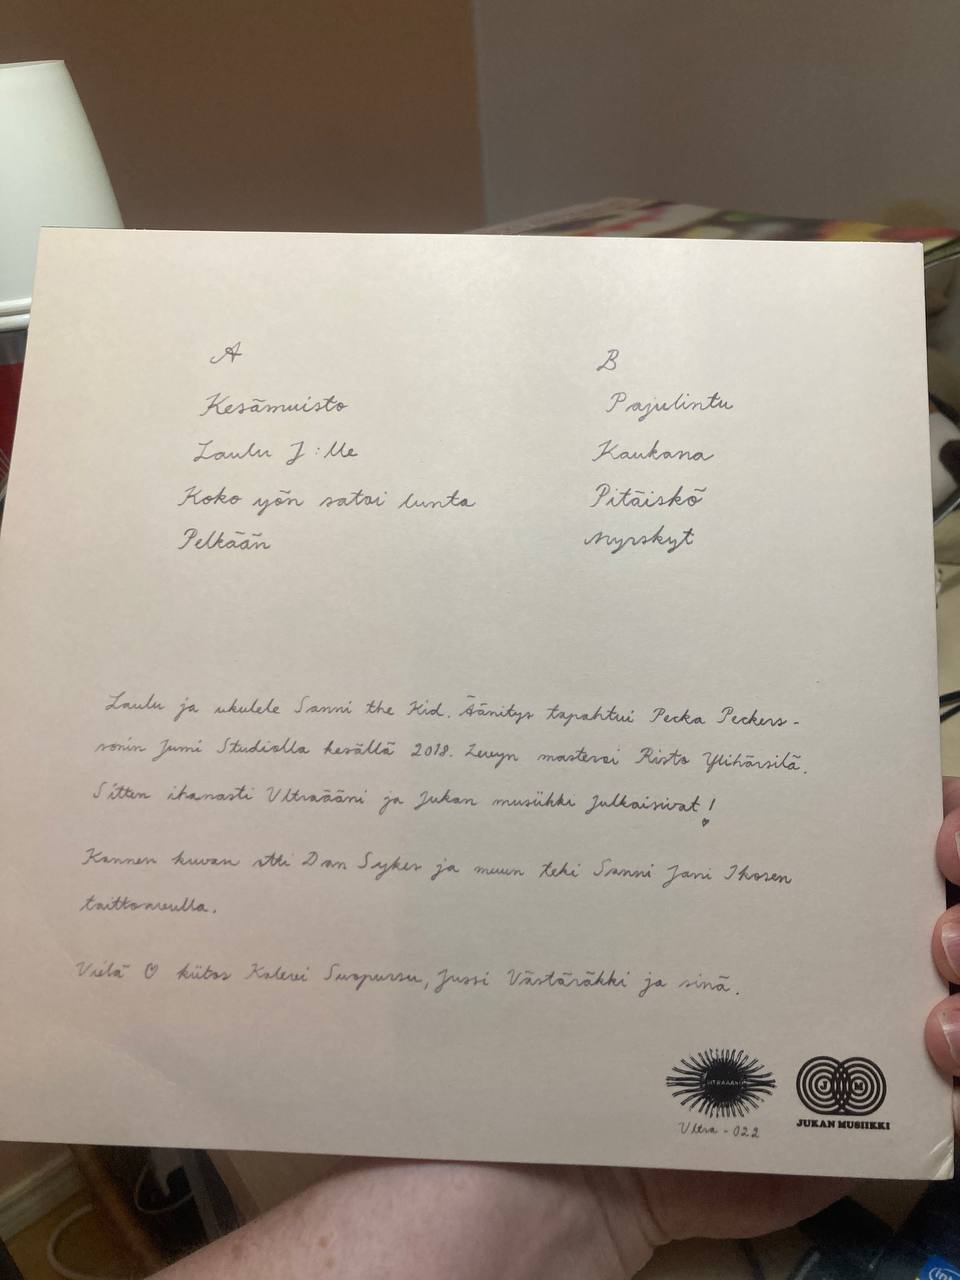 A
Kesämuisto
Laulu J:lle
Koko yön satoi lunta
Pelkään
B
Pajulintu
Kaukana
Pitäiskö
Myrskyt
Laulu ja ukulele Sanni the Kid. Äänitys tapahtui Pecka Peckers-
sonin Jumi Studiolla kesällä 2018. Levyn masteroi Risto Ylihärsilä.
Sitten ihanasti Ultraääni ja Jukan musiikki julkaisivat!
Kannen kuvan otti Dan Sykes ja muun teki Sanni Jani Ikosen
taittoavulla.
Vielä ♡ kiitos Kalevi Suopursu, Jussi Västäräkki ja sinä.
ULTRAÄÄNI
Ultra-022
J M
JUKAN MUSIIKKI